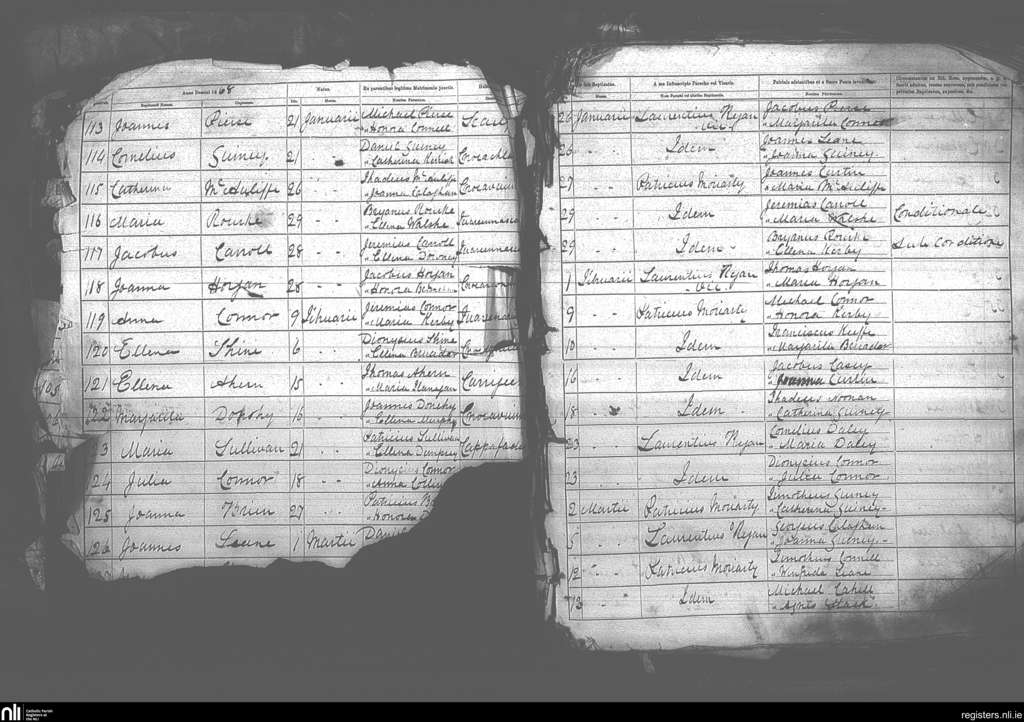 Anno Domini 1868
Natus.
Ex parentibus legitimo Matrimonio junctis.
Baptizati Nomen.
Cognomen.
Die.
Mense.
Nomina Parentum.
113 Joannes Pierse 21 Januarii Michael Pierse
" Honora Connell
114 Cornelius Guiney 21 " " Daniel Guiney
" Catherina
115 Catherina McAuliffe 26 " " Thadeus McAuliffe
" Joanna Calaghan
116 Maria Rourke 29 " " Bryanus Rourke
" Ellena Walshe
117 Jacobus Carroll 28 " " Jeremias Carroll
" Ellena Downey
118 Joanna Horgan 28 " " Jacobus Horgan
" Honora
119 Anna Connor 9 Februarii Jeremias Connor
" Maria Kerby
120 Ellena Shine 6 " " Dionysius Shine
" Ellena
121 Ellena Ahern 15 " " Thomas Ahern
" Maria Flanagan
122 Margarita Donohy 16 " " Joannes Donohy
" Ellena Murphy
3 Maria Sullivan 21 " " Patricius Sullivan
" Ellena Dempsey Cappa
24 Julia Connor 18 " " Dionysius Connor
" Anna
125 Joanna Brien 27 " " Patricius
" Honora
126 Joannes Leane 1 Martii
Baptizatus.
Mense.
A me Infrascripto Parocho vel Vicario.
26 Januarii Laurentius Ryan
Vic.
Jacobus Pierse
" Margarita Connell
26 " " Idem Joannes Leane
" Joanna Guiney
27 " " Patricius Moriarty Joannes Curtin
" Maria McAuliffe
29 " " Idem Jeremias Carroll
" Maria Walshe Conditionate
29 " " Idem Bryanus Rourke
" Ellena Kerby Sub Conditione
1 Februarii Laurentius Ryan
Vic.
Thomas Horgan
" Maria Horgan
9 " " Patricius Moriarty Michael Connor
" Honora Kerby
10 " " Idem Franciscus Keeffe
" Margarita
16 " " Idem Jacobus Casey
" Joanna Curtin
18 " " Idem Thadeus Noonan
" Catherina Guiney
23 " " Laurentius Ryan Cornelius Daley
" Maria Daley
23 " " Idem Dionysius Connor
" Julia Connor
2 Martii Patricius Moriarty Timotheus Guiney
" Catherina Guiney
5 " " Laurentius Ryan Georgius Calaghan
" Joanna Guiney
12 " " Patricius Moriarty Timotheus Connell
" Winfrida Leane
13 " " Idem Michael Cahill
" Agnes Stack
nli Catholic Parish
Registers at
the NLI
registers.nli.ie